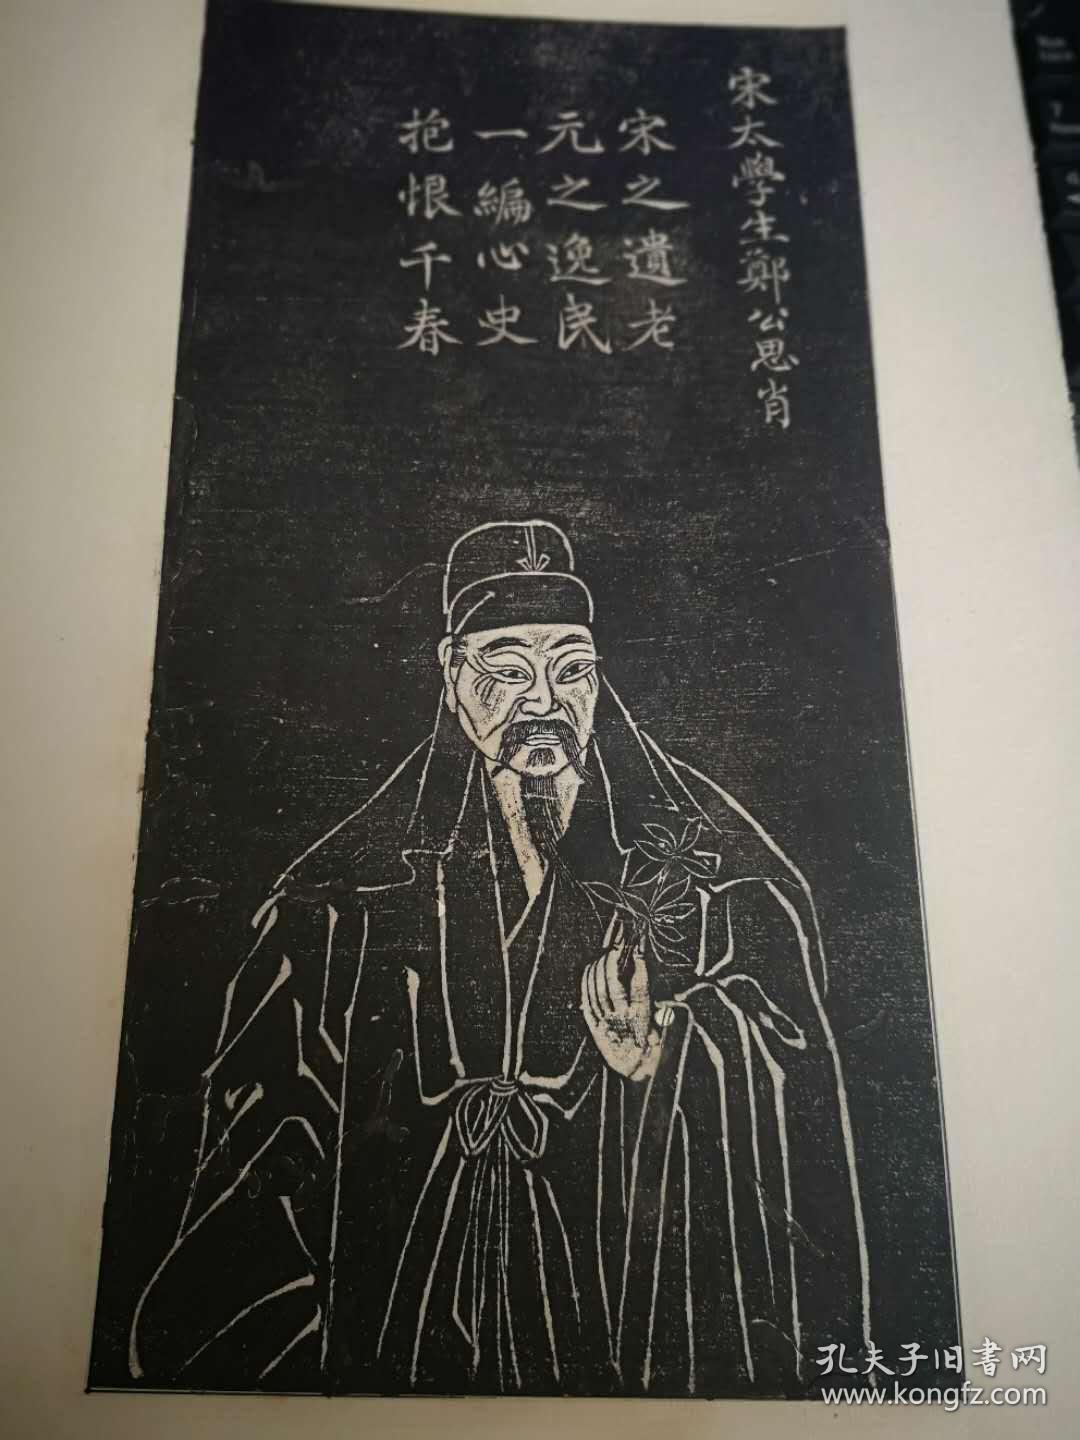 宋太學生鄭公思肖
宋之遺老
元之逸民
一編心史
抱恨千春
孔夫子旧書网
www.kongfz.com